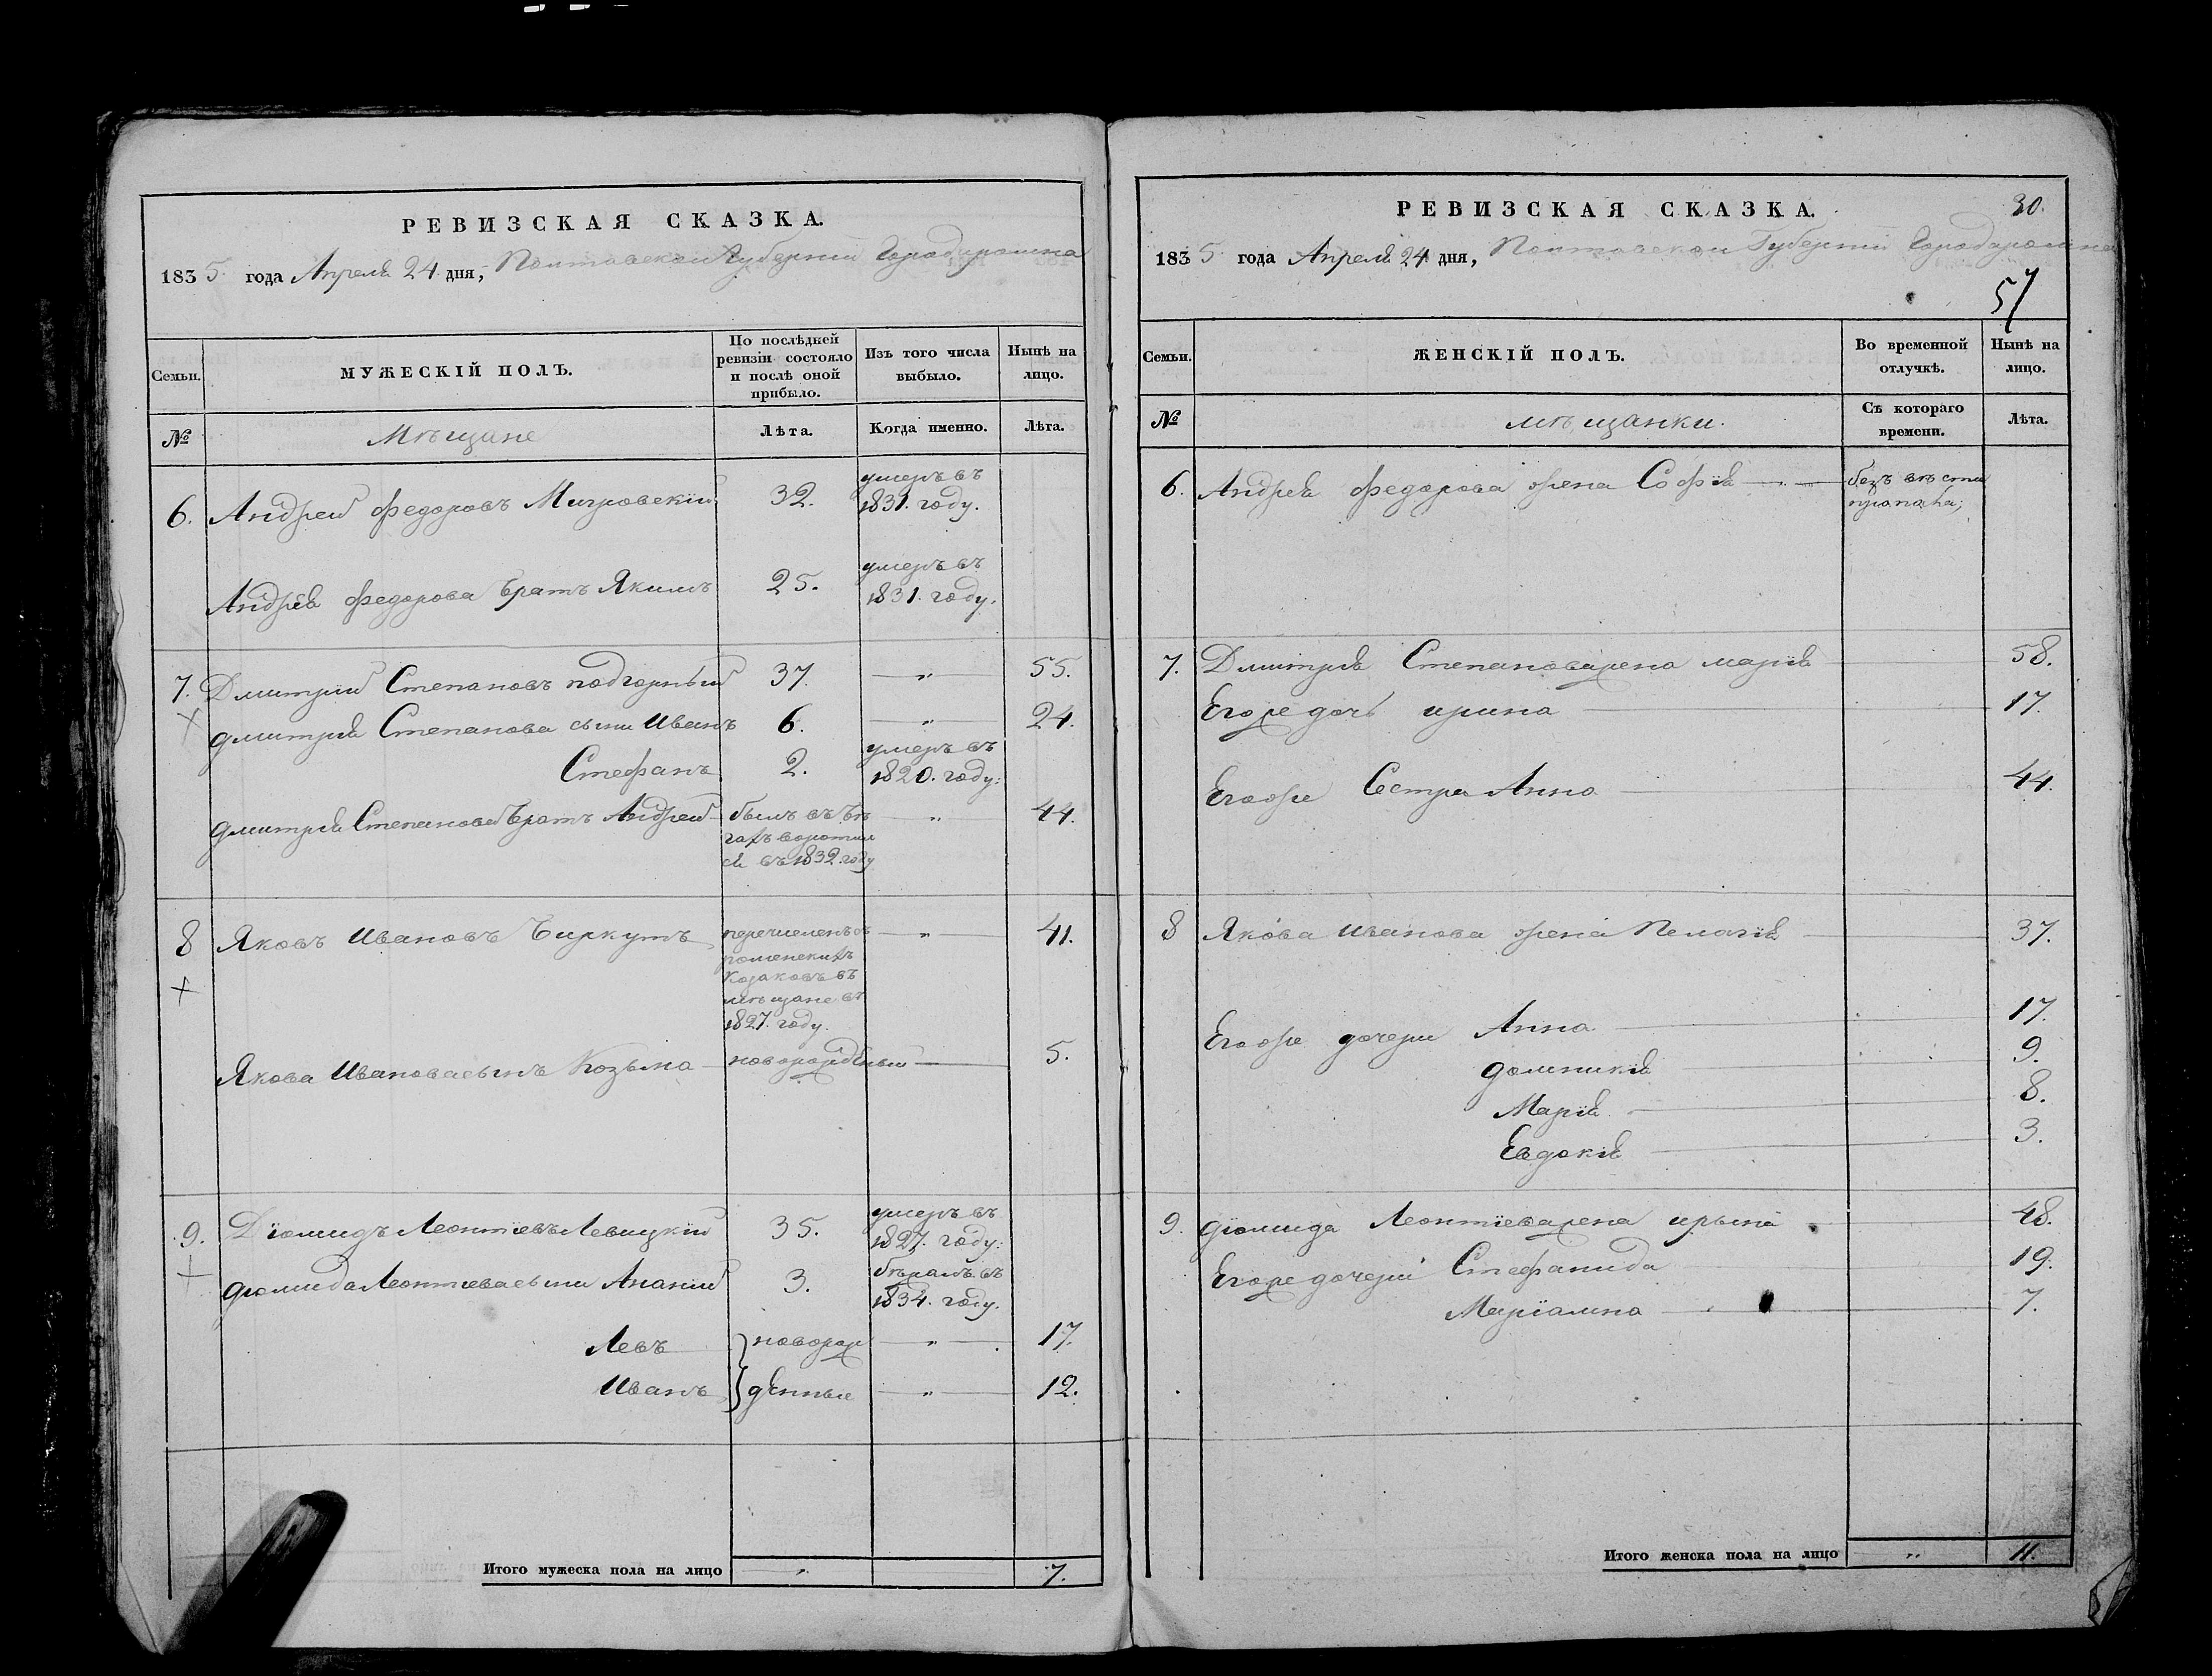 РЕВИЗСКАЯ СКАЗКА.
1835 года Апреля 24 дня, Полтавской Губернии Города ромна
Семьи.
МУЖЕСКІЙ ПОЛЪ.
По послѣдней
ревизіи состояло
и послѣ оной
прибыло.
Изъ того числа
выбыло.
Нынѣ на
лицо.
№
Мѣщане
Лѣта.
Когда именно.
Лѣта.
6. Андрей федоровъ 32. умеръ въ
1831. году.
Андрея федорова братъ Якимъ 25. умеръ въ
1831. году.
7. Дмитрій Степановъ подгорный 37. — „ — 55.
дмитрія Степанова сыни Иванъ 6. — „ — 24.
Стефанъ 2. умеръ въ
1820. году.
дмитрія Степанова братъ Андрей былъ въ бѣ — „ — 44.
гахъ воротил
ся въ 1832. году
8 Яковъ Ивановъ Биркутъ перечисленъ съ — „ — 41.
роменскихъ
Козаковъ въ
мѣщане въ
1827. году.
Якова Иванова сынъ Козьма новорожденый — 5.
9. Діомидъ Леонтіевъ Левицкій 35. умеръ въ
1827. году.
діомида Леонтіева сыни Ананій 3. бѣжалъ въ
1834. году.
Левъ } новорож — „ — 17.
Иванъ } денные — „ — 12.
Итого мужеска пола на лицо „ 7.
РЕВИЗСКАЯ СКАЗКА. 30.
1835 года Апреля 24 дня, Полтавской Губерніи Города ромна
57
Семьи.
ЖЕНСКІЙ ПОЛЪ.
Во временной
отлучкѣ.
Нынѣ на
лицо.
№
мѣщанки.
Съ котораго
времени.
Лѣта.
6. Андрея федорова жена Софія — безъ вѣсти
пропала;
7. Дмитрія Степанова жена марія 58.
Егоже дочь ирина 17.
Егоже Сестра Анна 44.
8 Якова Иванова жена Пелагія 37.
Егоже дочери Анна 17.
домникія 9.
Марія 8.
Евдокія 3.
9. діомида Леонтіева жена ирына 48.
Егоже дочери Стефанида 19.
Маріамна 7.
Итого женска пола на лицо „ 11.